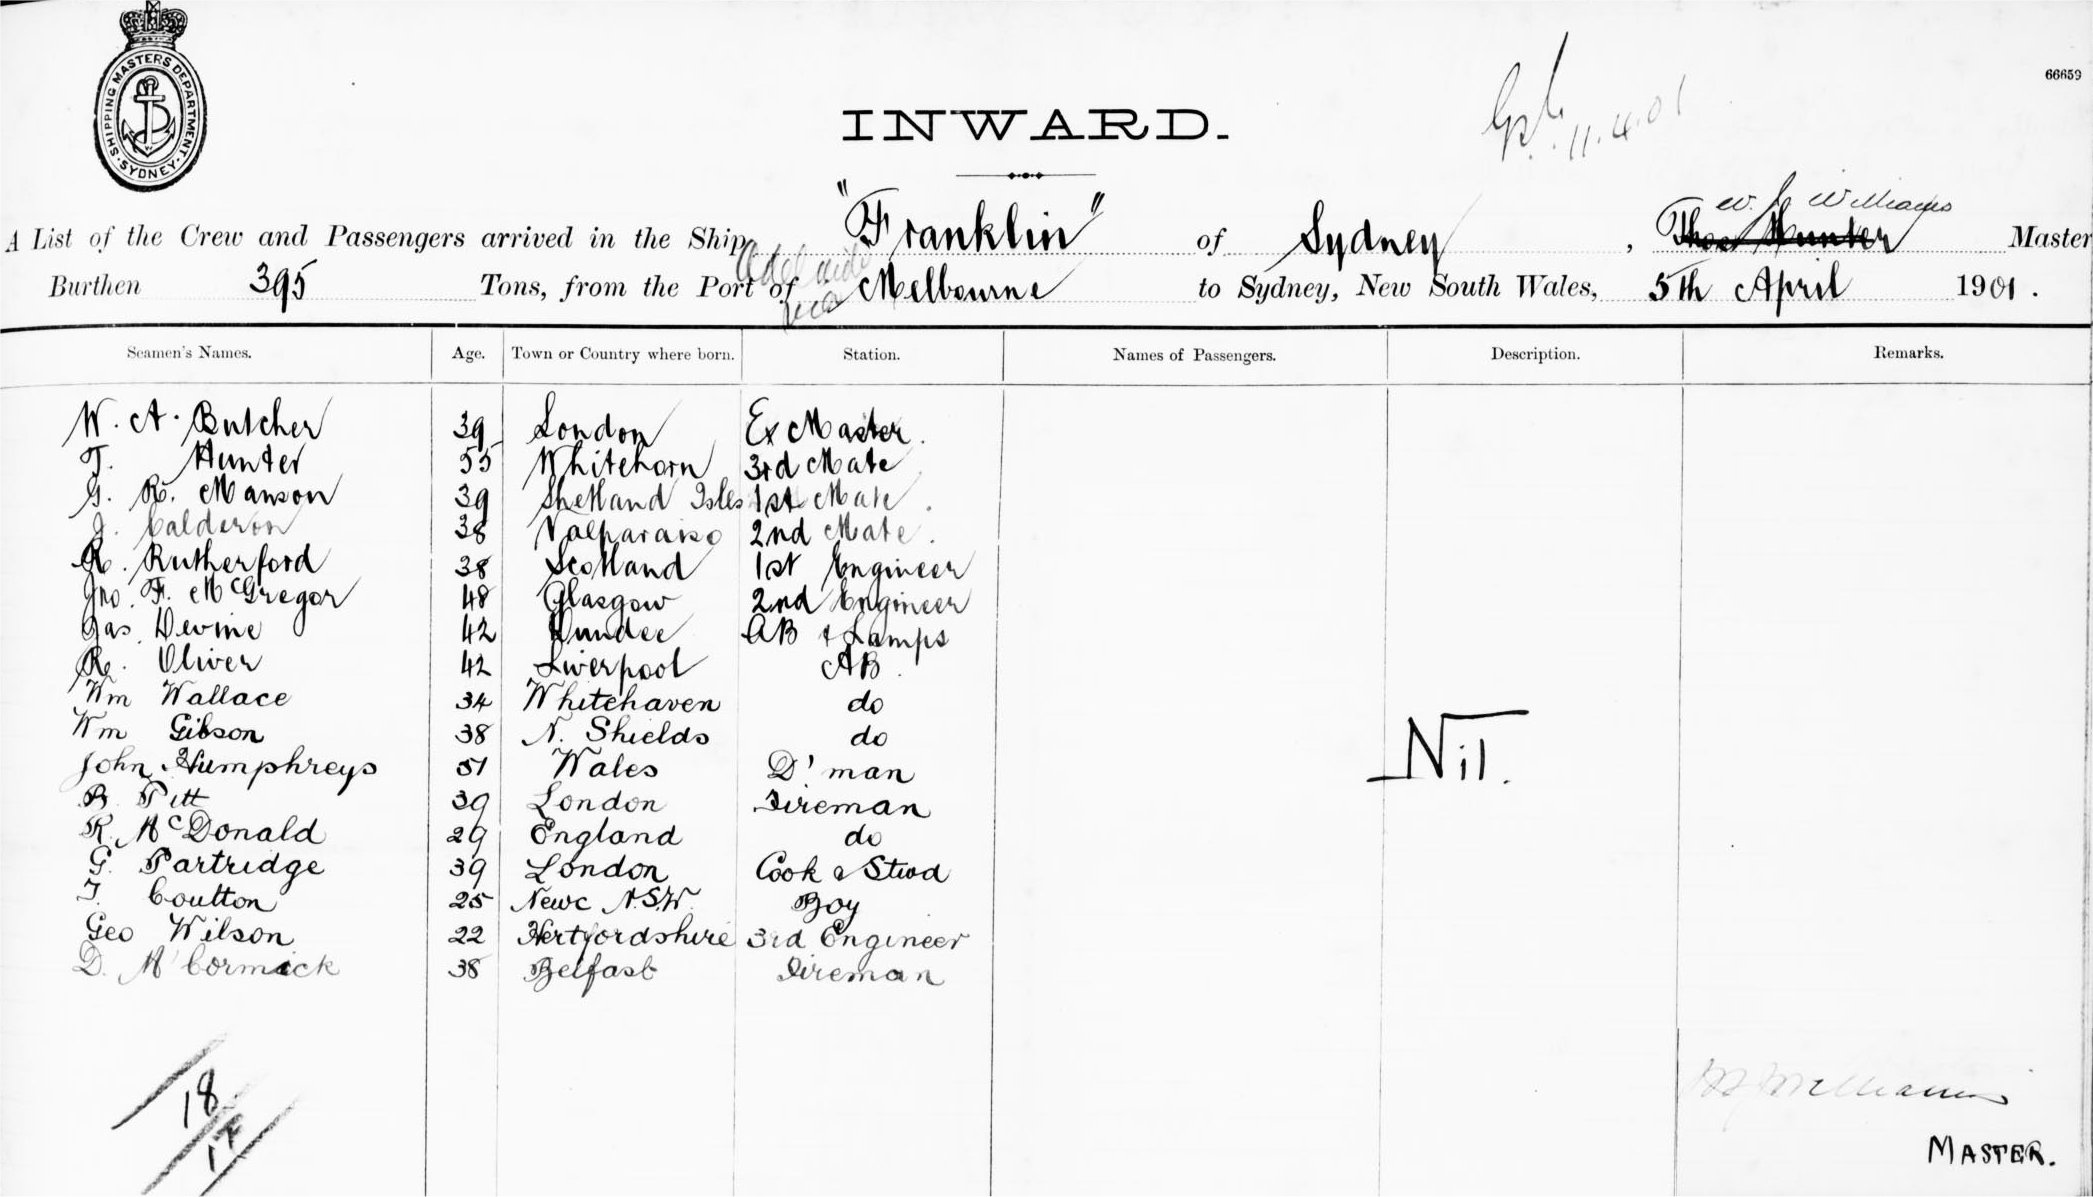 SHIPPING MASTERS DEPARTMENT. SYDNEY
11.4.01
66659
INWARD.
W. J. Williams
A List of the Crew and Passengers arrived in the Ship "Franklin" of Sydney, Thos Hunter Master
Adelaide
Burthen 395 Tons, from the Port of via Melbourne to Sydney, New South Wales, 5th April 1901.
Seamen's Names. Age. Town or Country where born. Station. Names of Passengers. Description. Remarks.
W. A. Butcher 39 London Ex Master.
T. Hunter 55 Whitehorn 3rd Mate
G. R. Manson 39 Shetland Isles 1st Mate.
J. Calderon 38 Valparaiso 2nd Mate.
R. Rutherford 38 Scotland 1st Engineer
Jno. F. McGregor 48 Glasgow 2nd Engineer
Jas. Devine 42 Dundee AB & Lamps
R. Oliver 42 Liverpool AB.
Wm Wallace 34 Whitehaven do
Wm Gibson 38 N. Shields do
John Humphreys 51 Wales D'man
B. Pitt 39 London Fireman
R. McDonald 29 England do
G. Partridge 39 London Cook & Stwd
T. Coulton 25 Newc N.S.W. Boy
Geo Wilson 22 Hertfordshire 3rd Engineer
D. McCormick 38 Belfast Fireman
Nil.
18
17
W J Williams
MASTER.